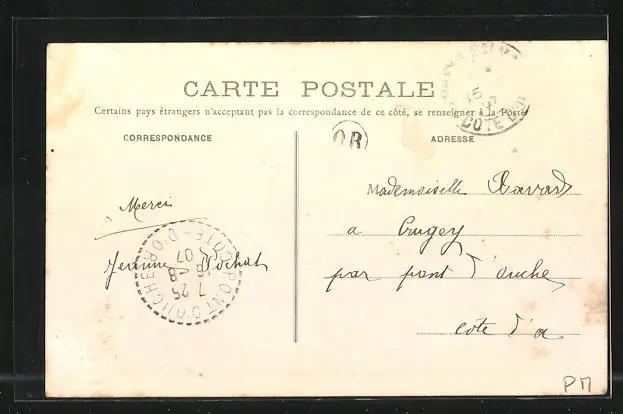 CARTE POSTALE
Certains pays étrangers n'acceptant pas la correspondance de ce côté, se renseigner à la Poste
CORRESPONDANCE
OR
ADRESSE
COTE D'OR
Mademoiselle
a Crugey
par pont d'ouche
cote d'or
Merci
Jeanne Pochat
PONT-D'OUCHE
COTE-D'OR
7 25
-8
07
PM